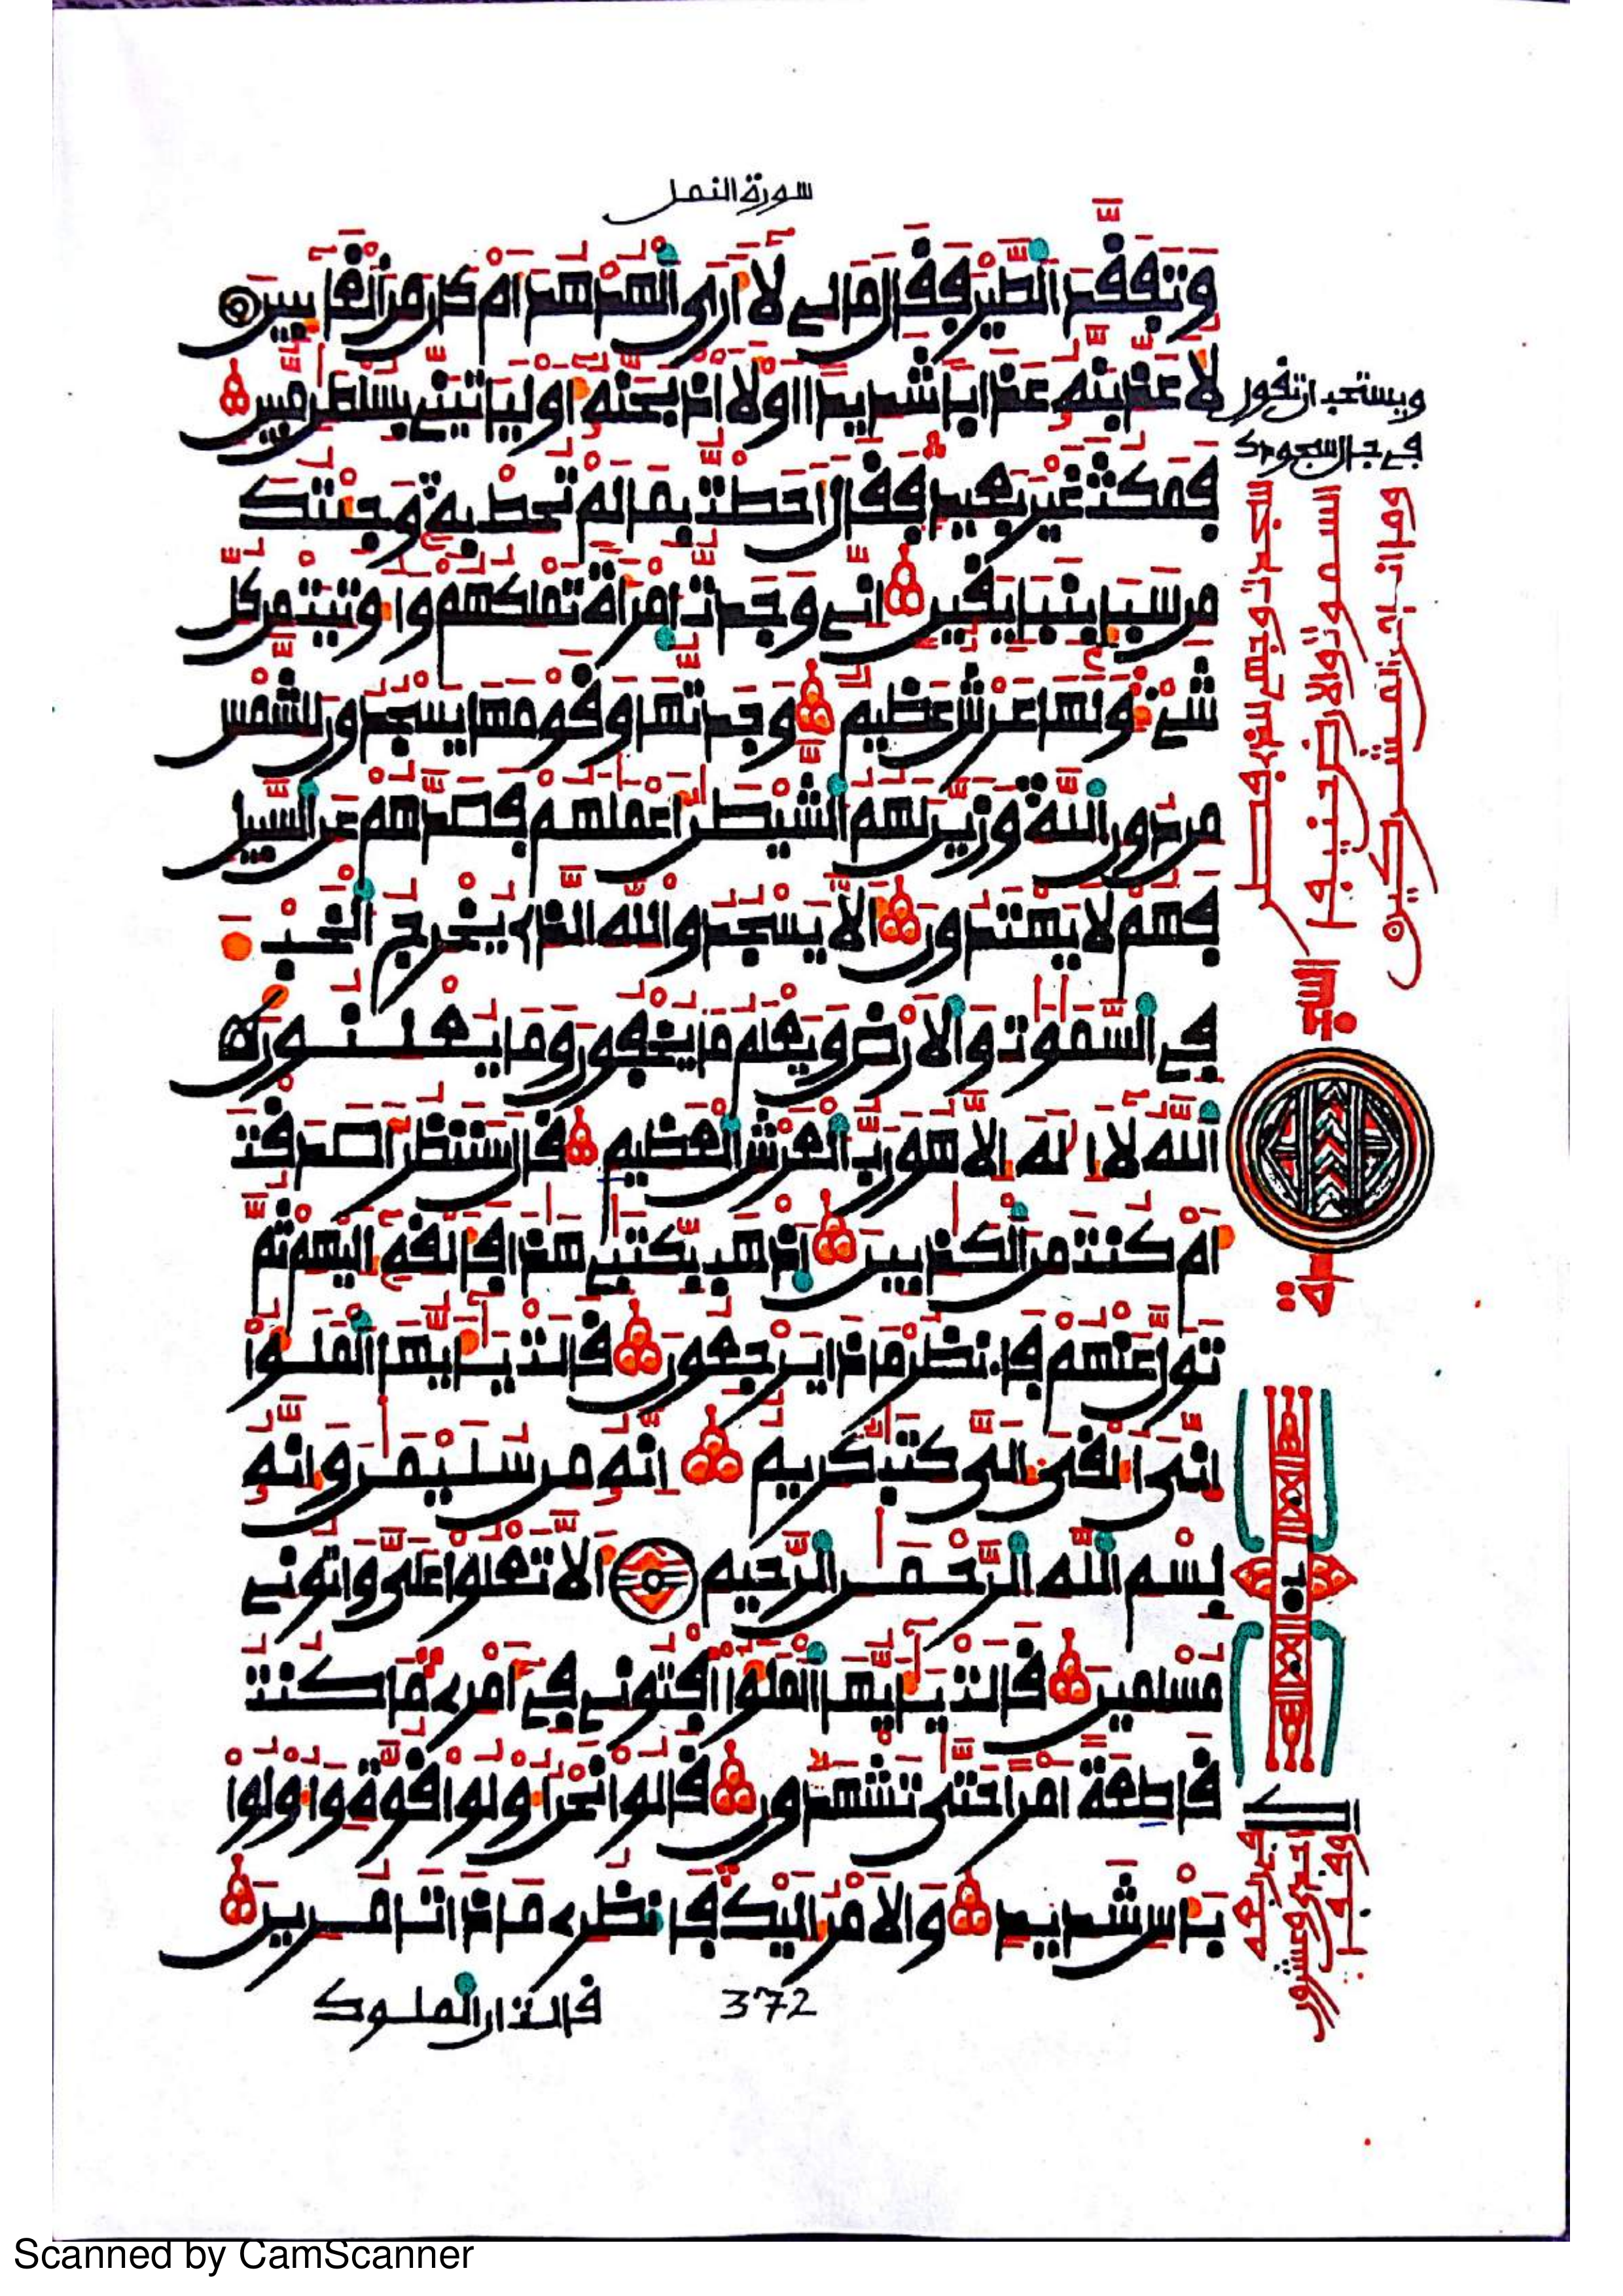 سورة النمل
وَتَفَقَّدَ ٱلطَّيْرَ فَقَالَ مَالِيَ لَا أَرَى ٱلْهُدْهُدَ أَمْ كَانَ مِنَ ٱلْغَآئِبِينَ
لَأُعَذِّبَنَّهُ عَذَابًا شَدِيدًا اَوْ لَأَاْذْبَحَنَّهُ أَوْ لَيَأْتِيَنِّي بِسُلْطَٰنٍ مُّبِينٍ
فَمَكُثَ غَيْرَ بَعِيدٍ فَقَالَ أَحَطتُ بِمَا لَمْ تُحِطْ بِهِ وَجِئْتُكَ
مِن سَبَإٍ بِنَبَإٍ يَقِينٍ إِنِّي وَجَدتُّ ٱمْرَأَةً تَمْلِكُهُمْ وَأُوتِيَتْ مِن كُلِّ
شَيْءٍ وَلَهَا عَرْشٌ عَظِيمٌ وَجَدتُّهَا وَقَوْمَهَا يَسْجُدُونَ لِلشَّمْسِ
مِن دُونِ ٱللَّهِ وَزَيَّنَ لَهُمُ ٱلشَّيْطَٰنُ أَعْمَٰلَهُمْ فَصَدَّهُمْ عَنِ ٱلسَّبِيلِ
فَهُمْ لَا يَهْتَدُونَ أَلَّا يَسْجُدُوا لِلَّهِ ٱلَّذِي يُخْرِجُ ٱلْخَبْءَ
فِي ٱلسَّمَٰوَٰتِ وَٱلْأَرْضِ وَيَعْلَمُ مَا يُخْفُونَ وَمَا يُعْلِنُونَ
ٱللَّهُ لَا إِلَٰهَ إِلَّا هُوَ رَبُّ ٱلْعَرْشِ ٱلْعَظِيمِ قَالَ سَنَنظُرُ أَصَدَقْتَ
أَمْ كُنتَ مِنَ ٱلْكَٰذِبِينَ ٱذْهَب بِّكِتَٰبِي هَٰذَا فَأَلْقِهِ إِلَيْهِمْ ثُمَّ
تَوَلَّ عَنْهُمْ فَٱنظُرْ مَاذَا يَرْجِعُونَ قَالَتْ يَٰأَيُّهَا ٱلْمَلَؤُا
إِنِّيَ أُلْقِيَ إِلَيَّ كِتَٰبٌ كَرِيمٌ إِنَّهُ مِن سُلَيْمَٰنَ وَإِنَّهُ
بِسْمِ ٱللَّهِ ٱلرَّحْمَٰنِ ٱلرَّحِيمِ أَلَّا تَعْلُوا عَلَيَّ وَأْتُونِي
مُسْلِمِينَ قَالَتْ يَٰأَيُّهَا ٱلْمَلَؤُا أَفْتُونِي فِي أَمْرِي مَا كُنتُ
قَاطِعَةً أَمْرًا حَتَّىٰ تَشْهَدُونِ قَالُوا نَحْنُ أُولُوا قُوَّةٍ وَأُولُوا
بَأْسٍ شَدِيدٍ وَٱلْأَمْرُ إِلَيْكِ فَٱنظُرِي مَاذَا تَأْمُرِينَ
قالت ان الملوك
372
ويستحب ان تقول
في حال السجودك
اللهم انى توجهت وجهي للذي فطر
السموت والارض حنيفا
وما انا من المشركين
السجدة
Scanned by CamScanner